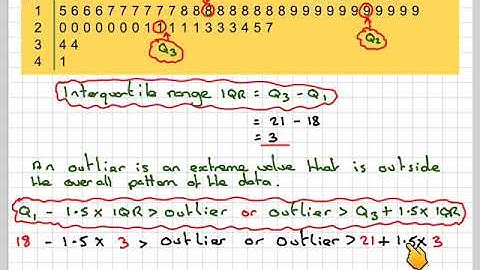 1 | 5 6 6 6 7 7 7 7 7 7 7 8 8 8 8 8 8 8 8 8 8 8 9 9 9 9 9 9 9 9 9 9
2 | 0 0 0 0 0 0 0 1 1 1 1 1 3 3 3 4 5 7
Q3 Q2
3 | 4 4
4 | 1
Interquartile range IQR = Q3 - Q1
= 21 - 18
= 3
An outlier is an extreme value that is outside
the overall pattern of the data.
Q1 - 1.5 x IQR > outlier or outlier > Q3 + 1.5 x IQR
18 - 1.5 x 3 > outlier or outlier > 21 + 1.5 x 3